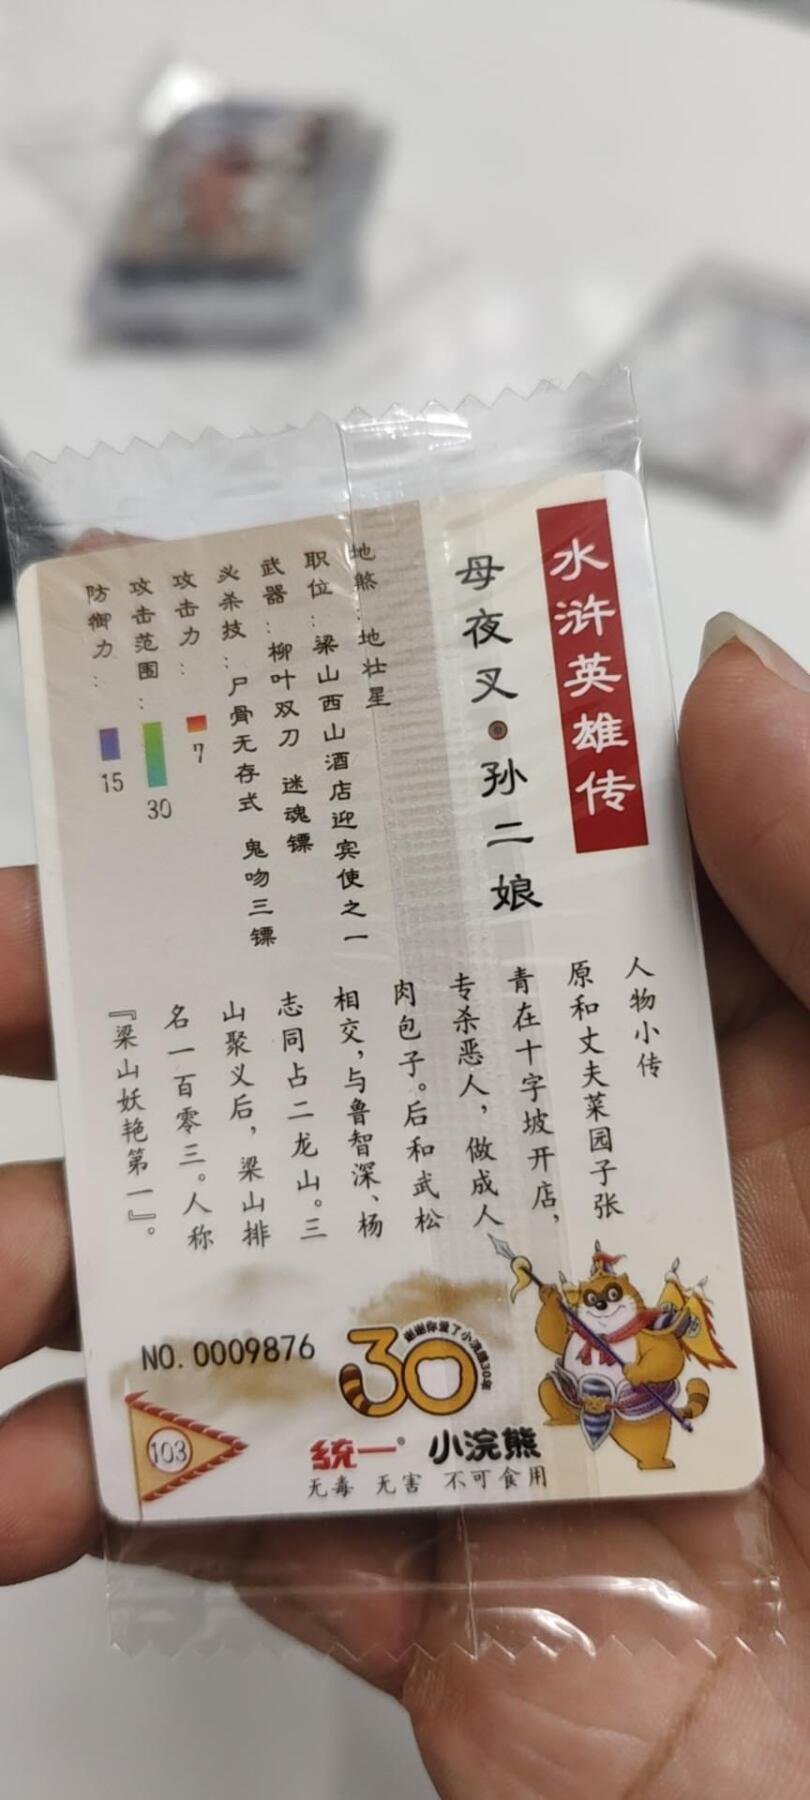 水浒英雄传
母夜叉·孙二娘
地煞：地壮星
职位：梁山西山酒店迎宾使之一
武器：柳叶双刀 迷魂镖
必杀技：尸骨无存式 鬼吻三镖
攻击力：7
攻击范围：30
防御力：15
人物小传
原和丈夫菜园子张
青在十字坡开店，
专杀恶人，做成人
肉包子。后和武松
相交，与鲁智深、杨
志同占二龙山。三
山聚义后，梁山排
名一百零三。人称
『梁山妖艳第一』。
NO.0009876
30
谢谢你爱了小浣熊30年
103
统一® 小浣熊
无毒 无害 不可食用